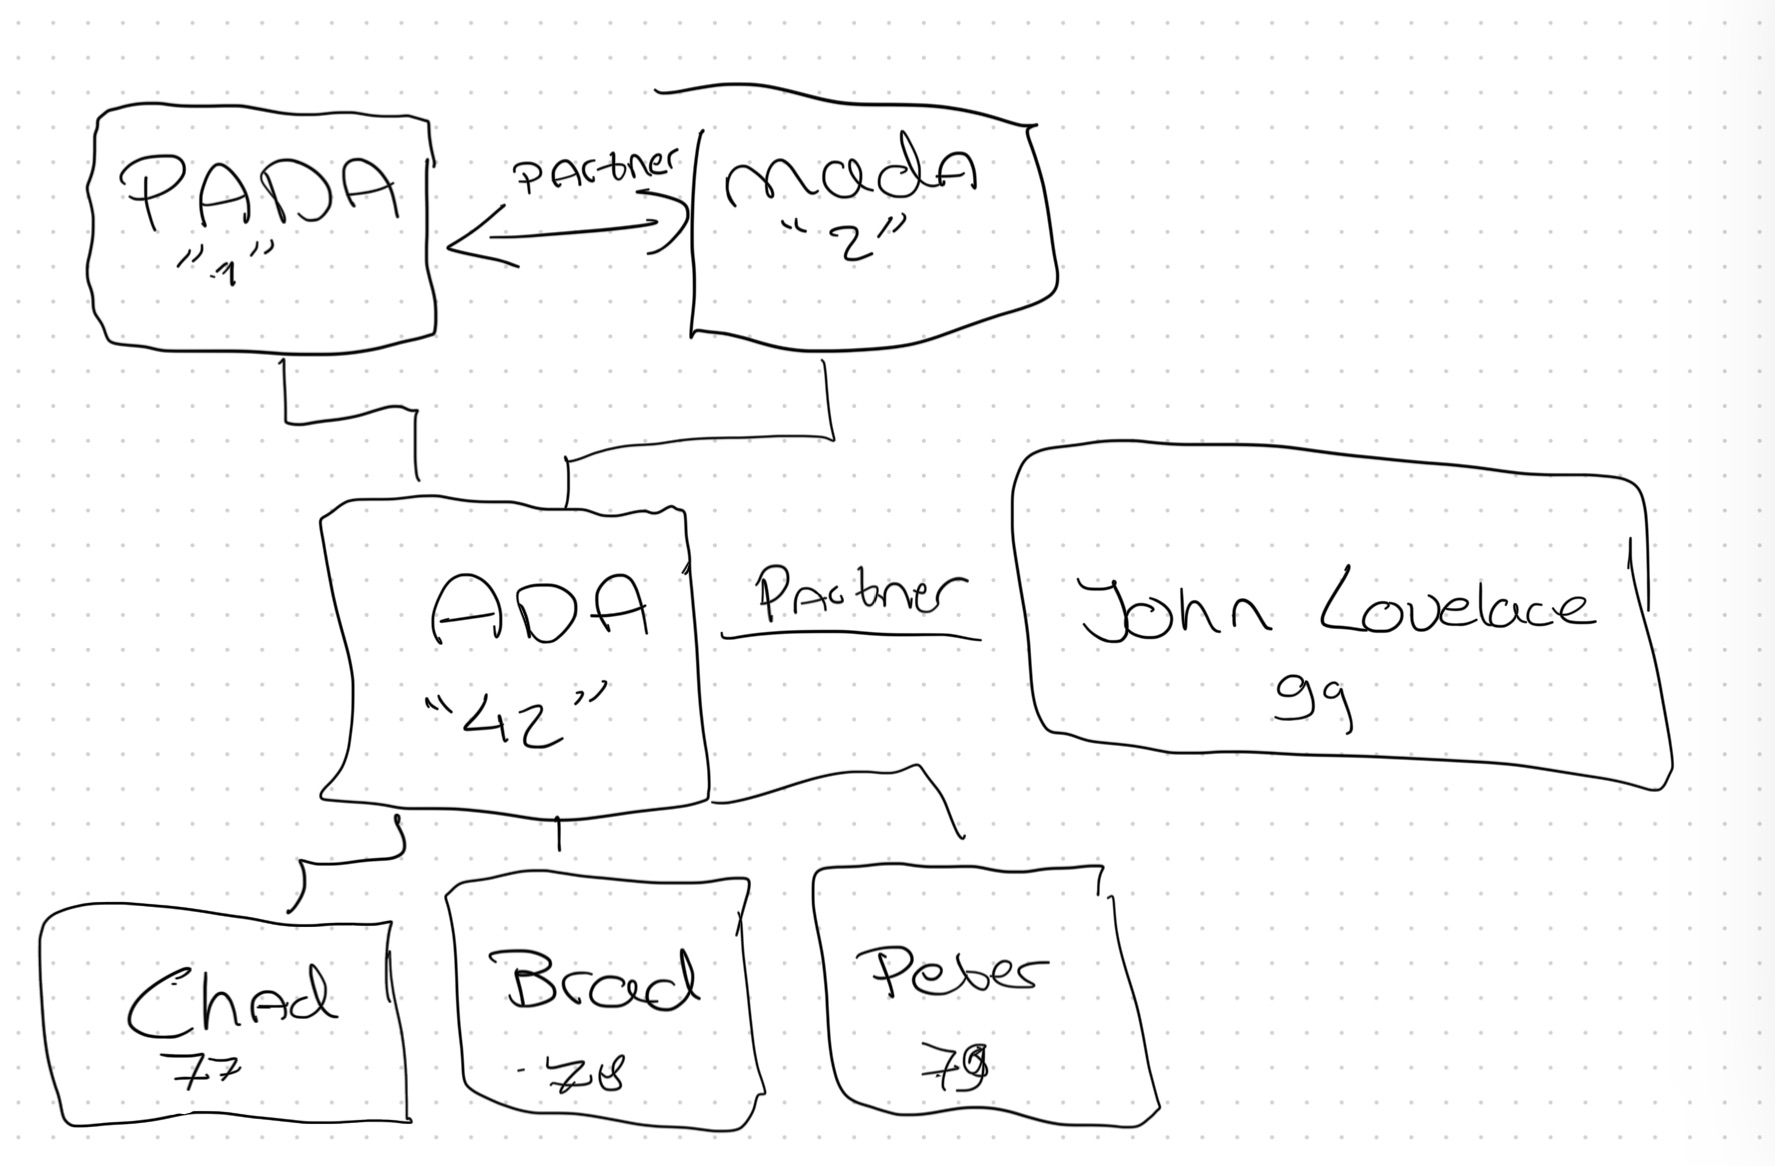 PADA
"1"
Partner
mada
"2"
ADA
"42"
Partner
John Lovelace
99
Chad
77
Brad
78
Peter
79